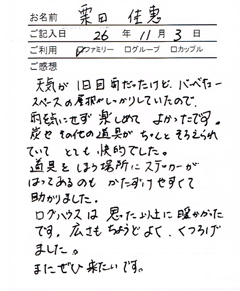 お名前 栗田 佳恵
ご記入日 26年 11月 3日
ご利用 ☑ファミリー □グループ □カップル
ご感想
天気が1日目雨だったけど、バーベキュー
スペースの屋根がしっかりしていたので、
雨を気にせず 楽しめて よかったです。
炭や その他の道具が ちゃんと そろえられ
ていて とても 快適でした。
道具を しまう場所に ステッカーが
はってあるのも かたずけやすくて
助かりました。
ログハウスは 思った以上に 暖かかった
です。広さも ちょうどよく、くつろげ
ました。
また ぜひ 来たいです。